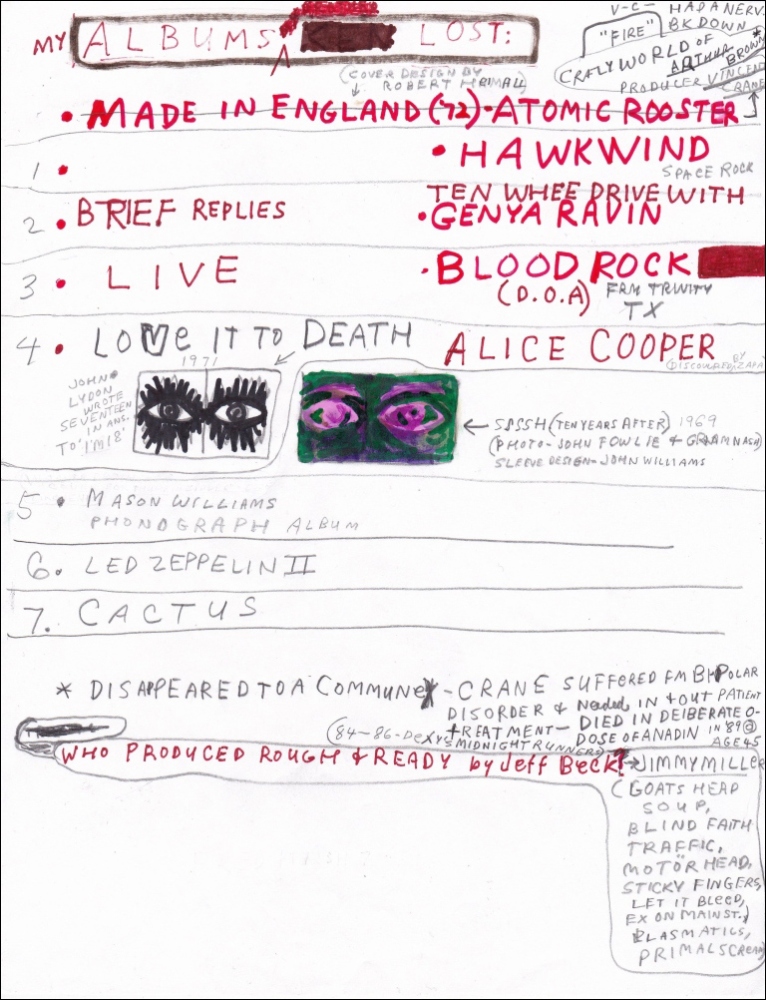 MY ALBUMS LOST:
V-C- HAD A NERV.
BKDOWN
"FIRE"
CRAZYWORLD OF
ARTHUR BROWN *
PRODUCER VINCENT
CRANE
(COVER DESIGN BY
ROBERT
• MADE IN ENGLAND ('72)-ATOMIC ROOSTER
1 •
• HAWKWIND
SPACE ROCK
2 • BRIEF REPLIES
TEN WHEE DRIVE WITH
• GENYA RAVIN
3 • LIVE
• BLOOD ROCK
(D.O.A) FRM TRINITY
TX
4 • LOVE IT TO DEATH
ALICE COOPER
DISCOVERED BY ZAPA
1971
JOHN
LYDON
WROTE
SEVENTEEN
IN ANS.
TO 'I'M 18'
← SSSSH (TEN YEARS AFTER) 1969
(PHOTO- JOHN FOWLIE & GRAHAM NASH)
SLEEVE DESIGN- JOHN WILLIAMS
5 • MASON WILLIAMS
PHONOGRAPH ALBUM
6. LED ZEPPELIN II
7. CACTUS
* DISAPPEARED TO A COMMUNE
-CRANE SUFFERED FM BIPOLAR
DISORDER & Needed IN & OUT PATIENT
TREATMENT- DIED IN DEIBERATE O-
DOSE OF ANADIN IN '89 @
AGE 45
(84-86-Dexys
MIDNIGHT RUNNERS)
WHO PRODUCED ROUGH & READY by Jeff Beck?
→ JIMMY MILLER
(GOATS HEAD
SOUP,
BLIND FAITH
TRAFFIC,
MOTÖR HEAD,
STICKY FINGERS,
LET IT BLEED,
EX ON MAINST.,
PLASMATICS,
PRIMAL SCREAM)